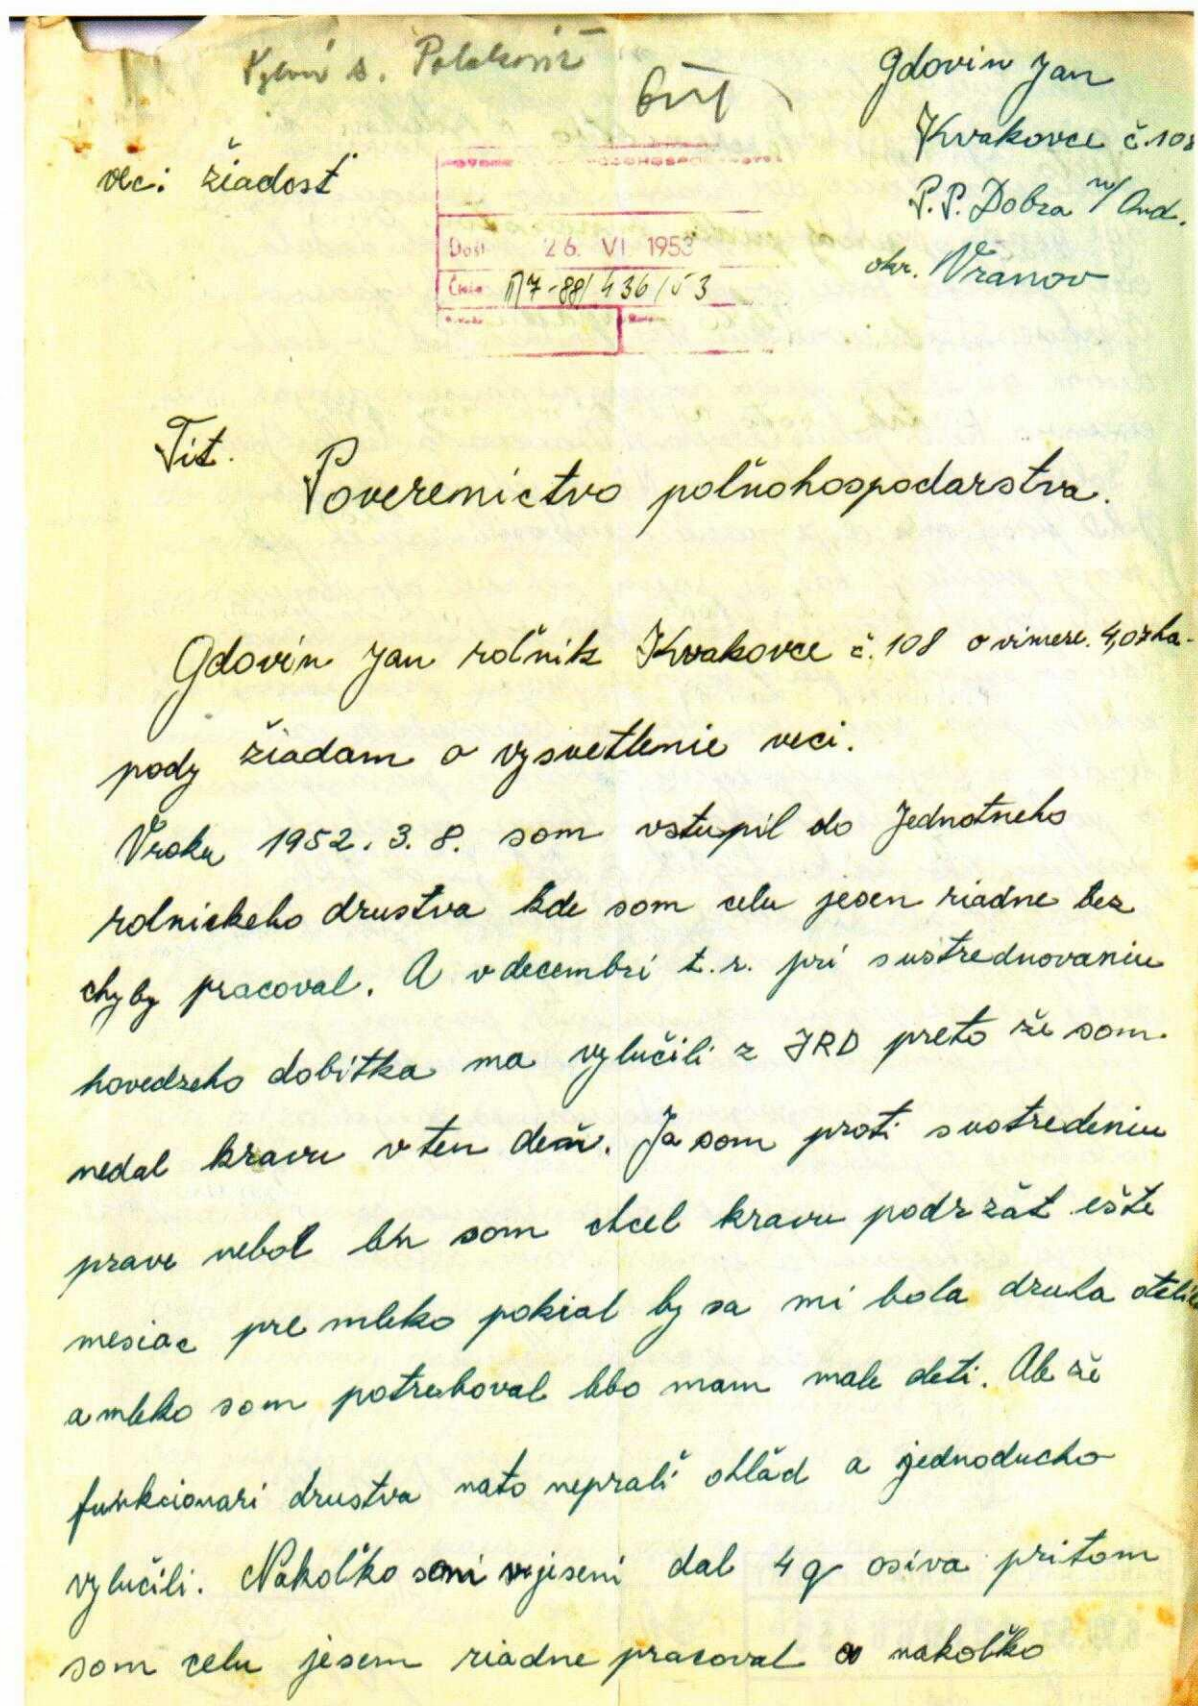 s. Polakovič
Gdovin Jan
Kvakovce č. 108
P.P. Dobra n/Ond.
okr. Vranov
vec: žiadosť
Došl. 26. VI 1953
Číslo II/7-88/436/53
Tit.
Poverenictvo poľnohospodarstva.
Gdovin Jan roľnik Kvakovce č. 108 o vimere. 4,07 ha.
pody žiadam o vysvetlenie veci.
Vroku 1952. 3. 8. som vstupil do Jednotneho
rolnickeho drustva kde som celu jesen riadne bez
chyby pracoval. A v decembri t. r. pri sustrednovaniu
hovedzeho dobitka ma vylučili z JRD preto že som
nedal kravu v ten deň. Ja som proti sustredeniu
prave nebol len som chcel kravu podržať ešte
mesiac pre mleko pokial by sa mi bola druha otelila
a mleko som potreboval lebo mam male deti. Ale že
funkcionari drustva nato neprali ohlad a jednoducho
vylučili. Nakoľko som vjeseni dal 4 q osiva pritom
som celu jesem riadne pracoval a nakoľko